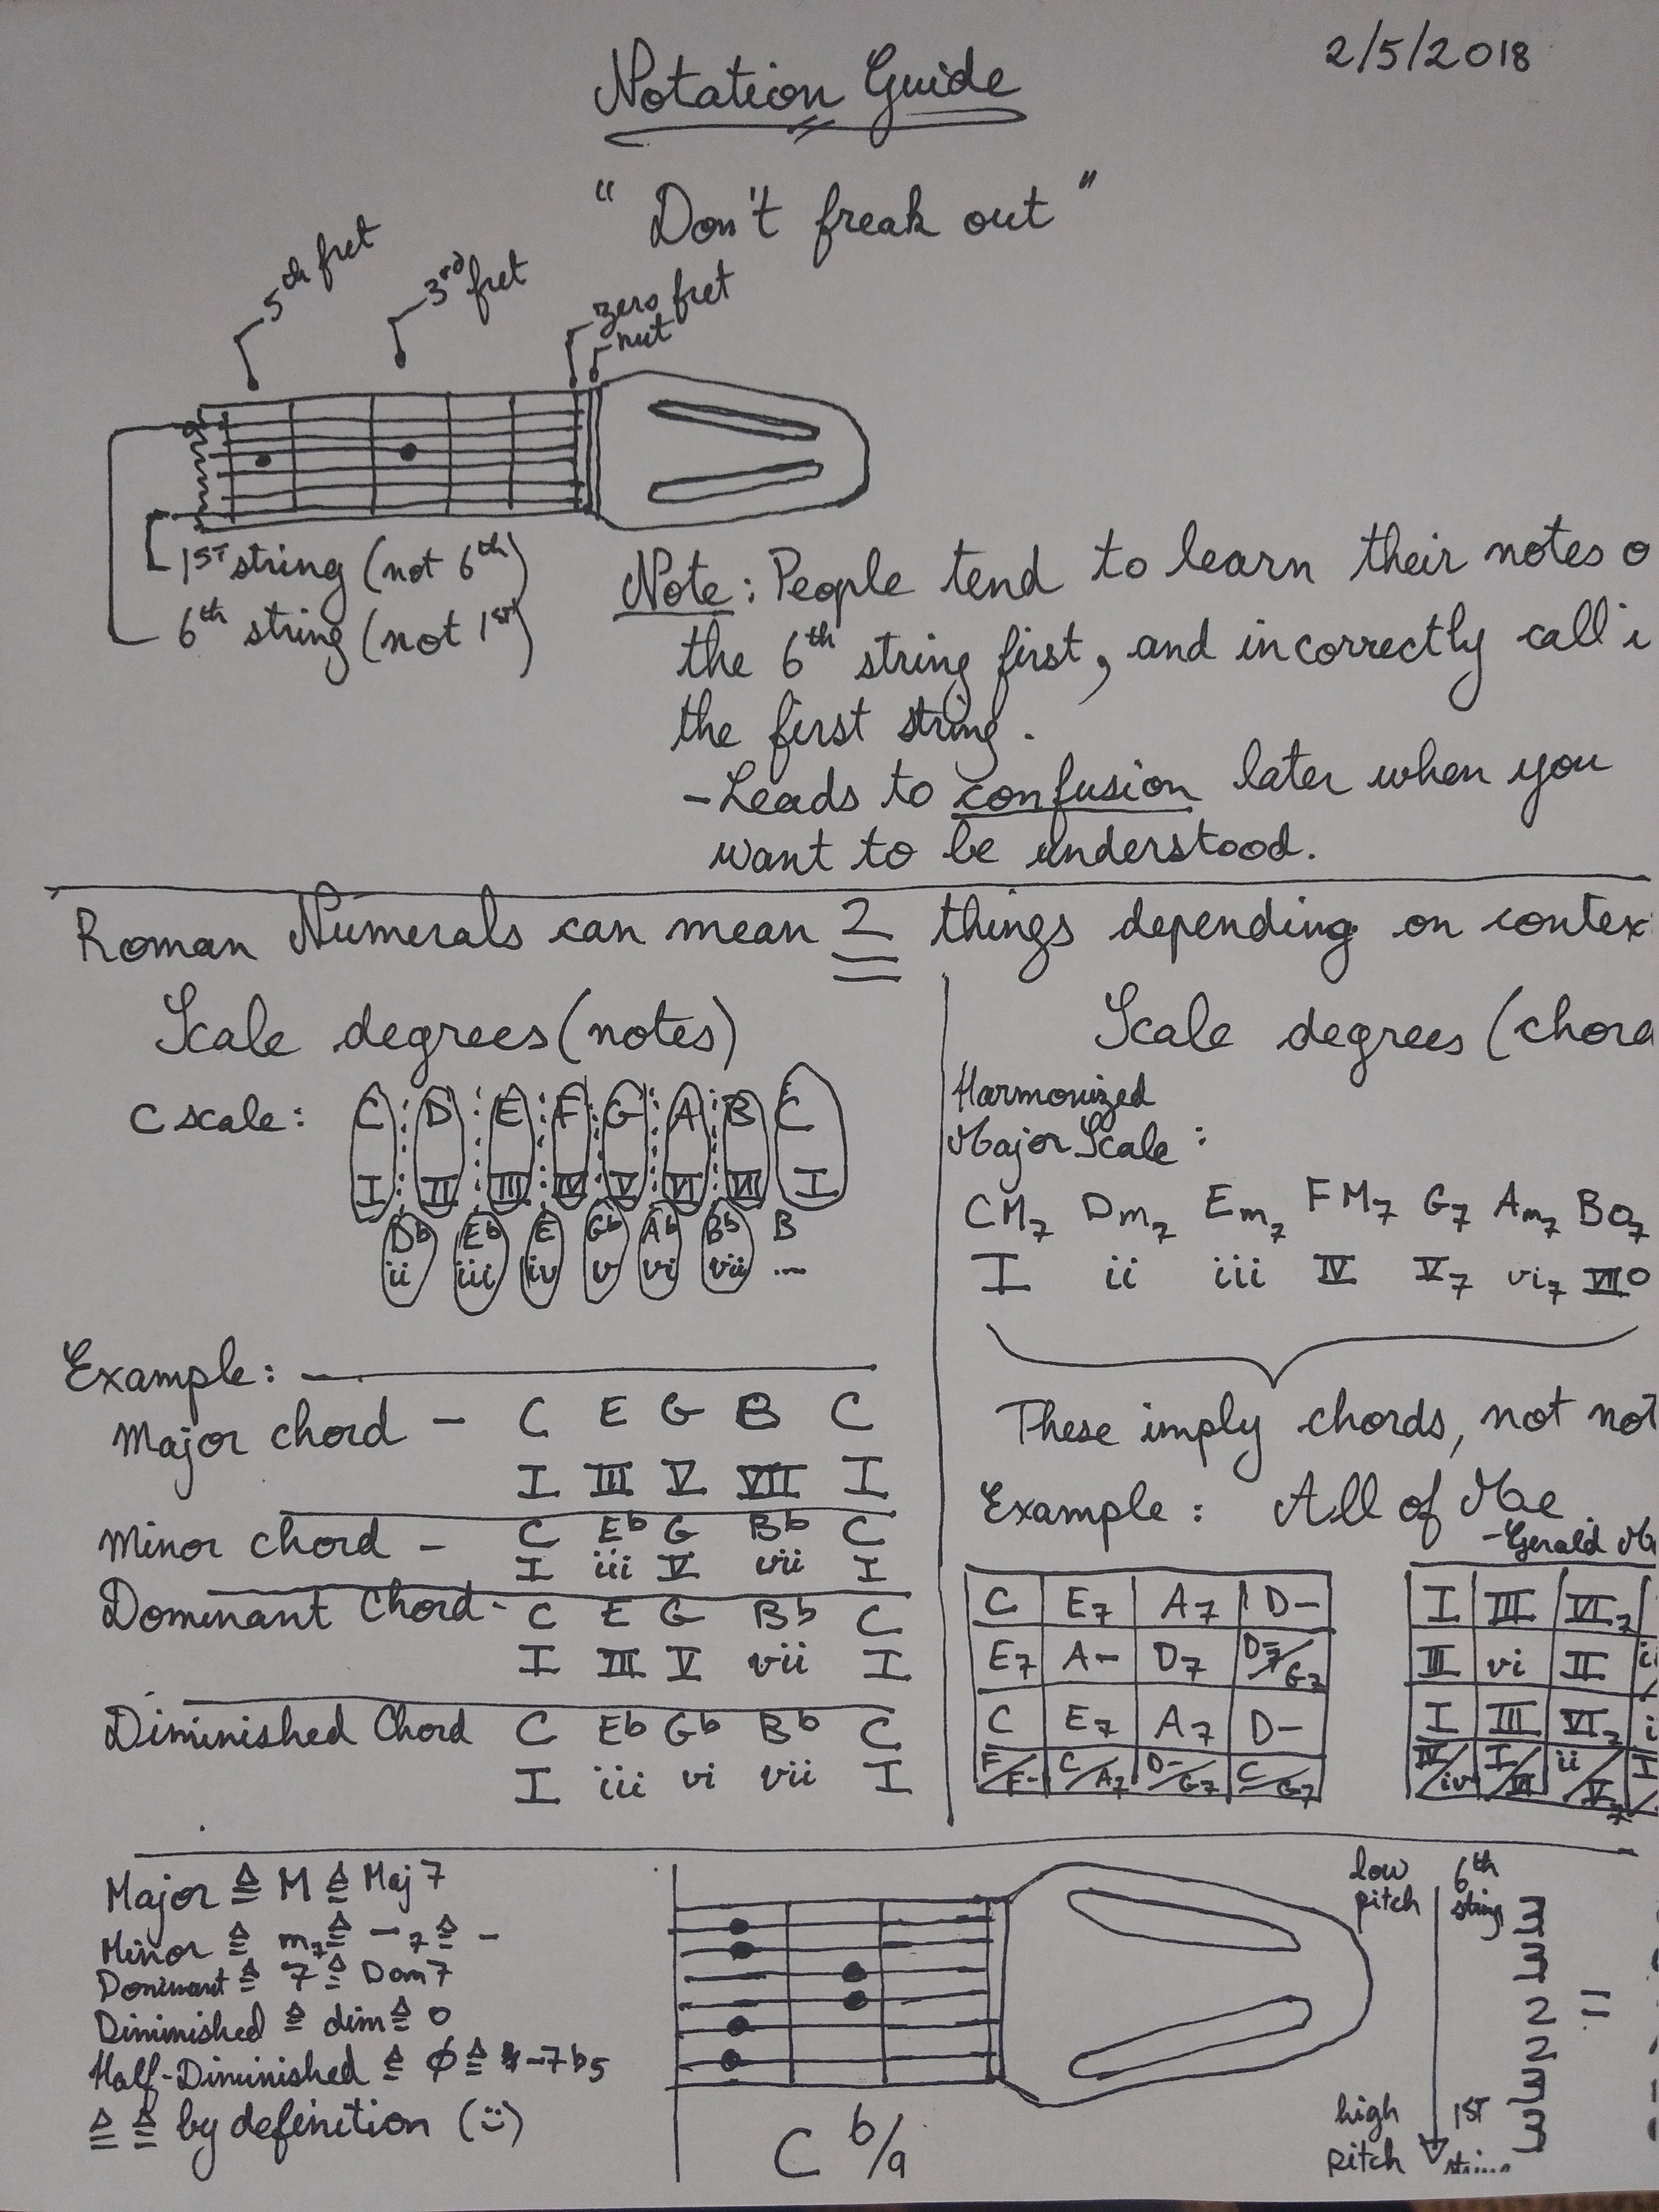 2/5/2018
Notation Guide
"Don't freak out"
5th fret
3rd fret
zero fret
nut
1ST string (not 6th)
6th string (not 1st)
Note: People tend to learn their notes o
the 6th string first, and incorrectly call i
the first string.
-Leads to confusion later when you
want to be understood.
Roman Numerals can mean 2 things depending on contex
Scale degrees (notes)
C scale: C D E F G A B C
I II III IV V VI VII I
Db Eb E Gb Ab Bb B
ii iii iv v vi vii ...
Example:
Major chord - C E G B C
I III V VII I
Minor chord - C Eb G Bb C
I iii V vii I
Dominant Chord - C E G Bb C
I III V vii I
Diminished Chord C Eb Gb Bb C
I iii vi vii I
Scale degrees (chord
Harmonized
Major Scale:
CM7 Dm7 Em7 FM7 G7 Am7 BO7
I ii iii IV V7 vi7 VIIO
These imply chords, not not
Example: All of Me
-Gerald Ma
C E7 A7 D-
E7 A- D7 D-7/G7
C E7 A7 D-
F/F- C/A7 D-/G7 C/G7
I III VI7
III vi II ii
I III VI7 i
IV/iv I/VI ii/V7 I
Major ≙ M ≙ Maj7
Minor ≙ m7 ≙ -7 ≙ -
Dominant ≙ 7 ≙ Dom7
Diminished ≙ dim ≙ o
Half-Diminished ≙ ø ≙ -7b5
≙ ≙ by definition (:))
C b/9
low
pitch
high
pitch
6th
string
1ST
3
3
2 =
2
3
3